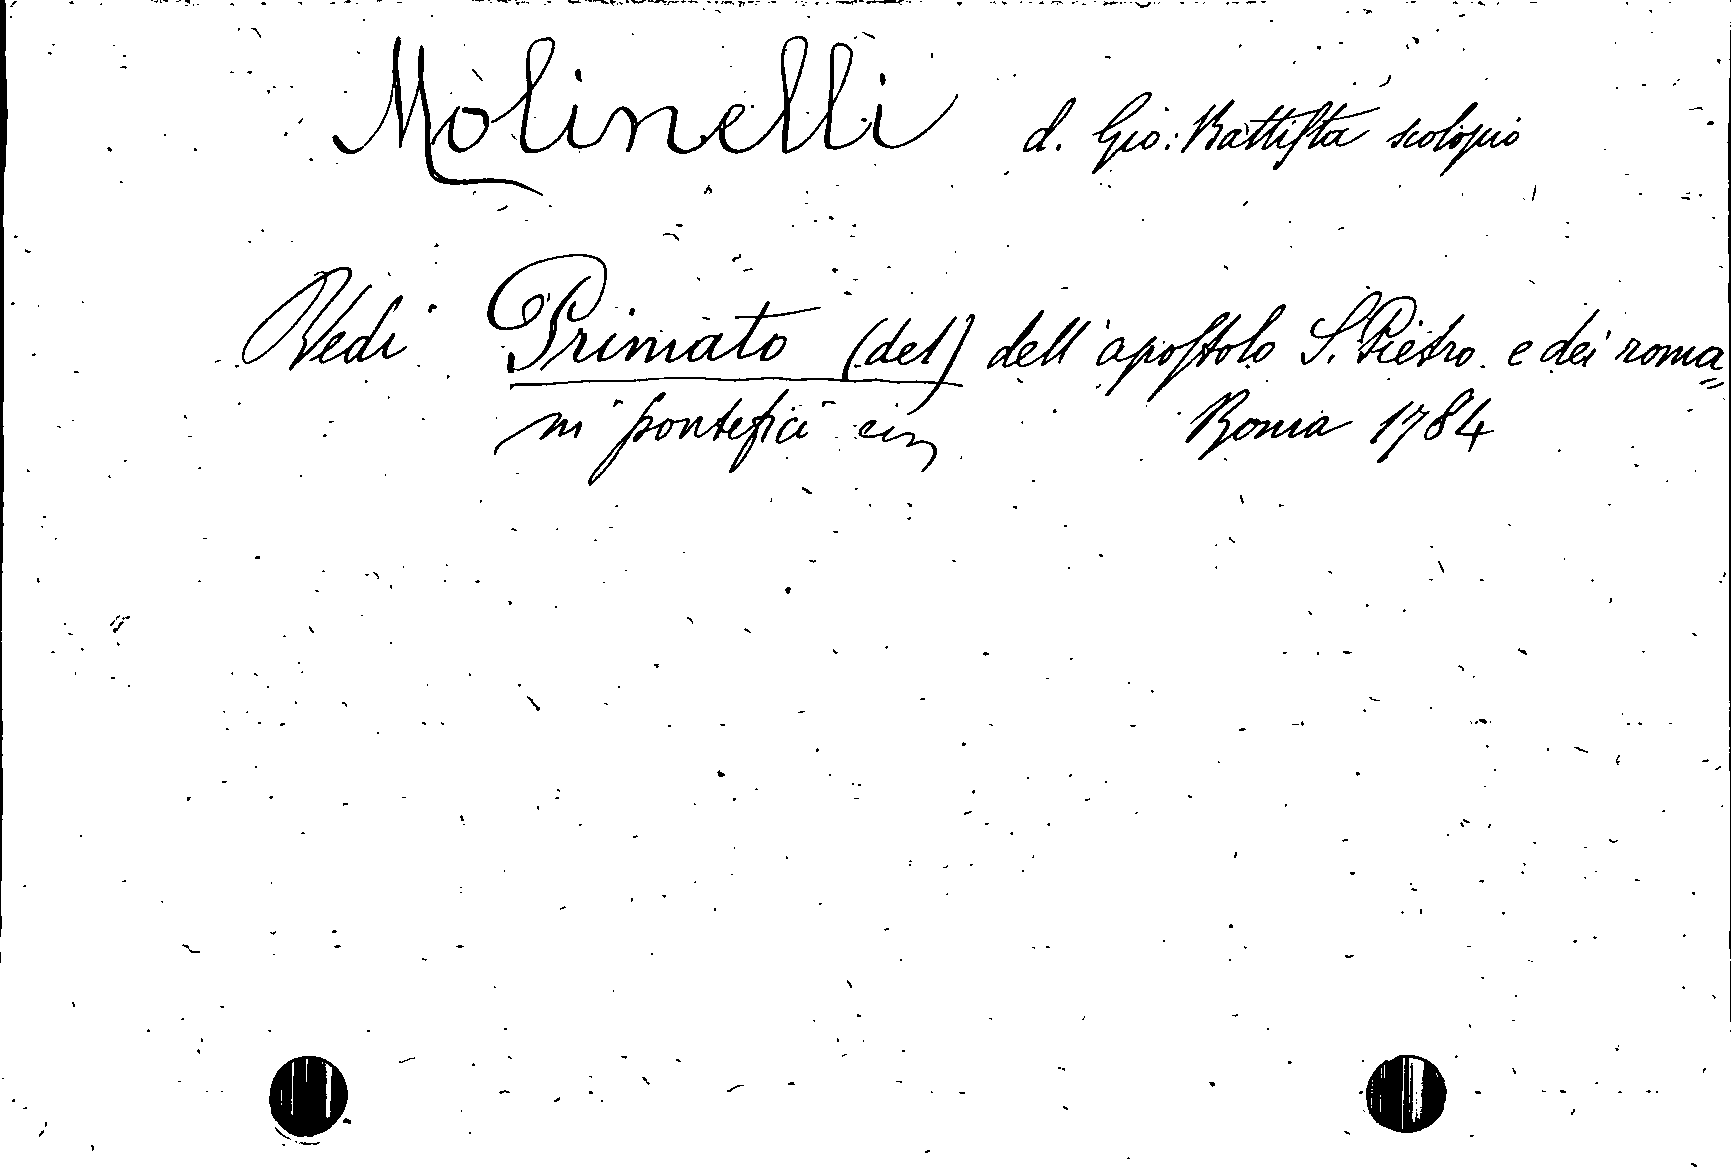 Molinelli d. Gio: Battista scolopio
Vedi Primato (del) dell'apostolo S. Pietro e dei roma=
ni pontefici
Roma 1784